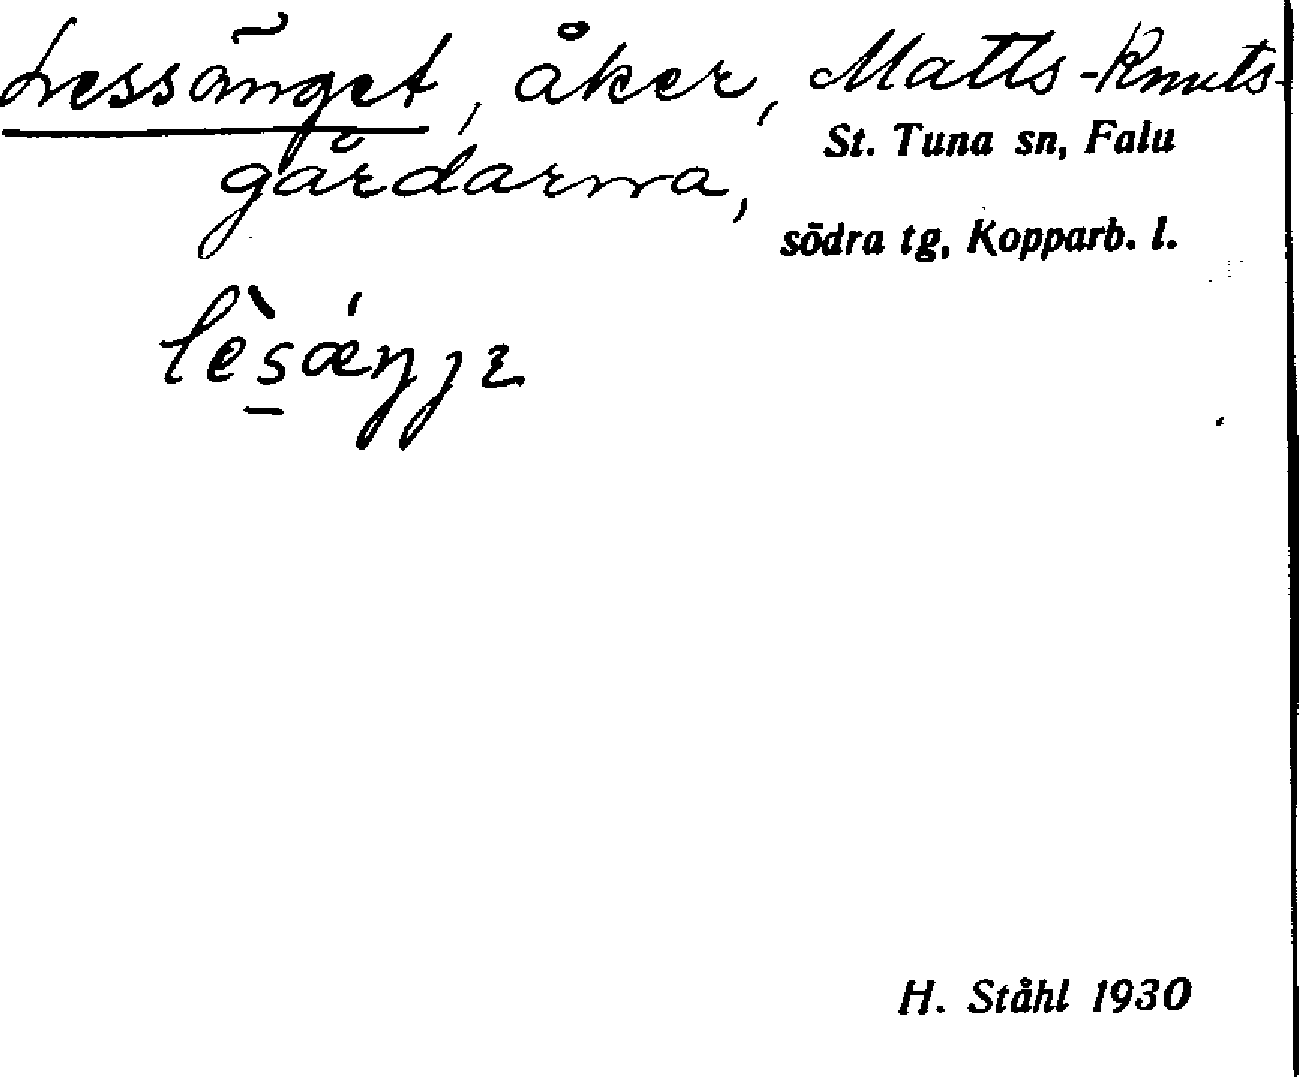 Lessänget, åker, Matts-Knuts-
gårdarna,
St. Tuna sn, Falu
södra tg, Kopparb. l.
lèsǽŋjɛ
H. Ståhl 1930